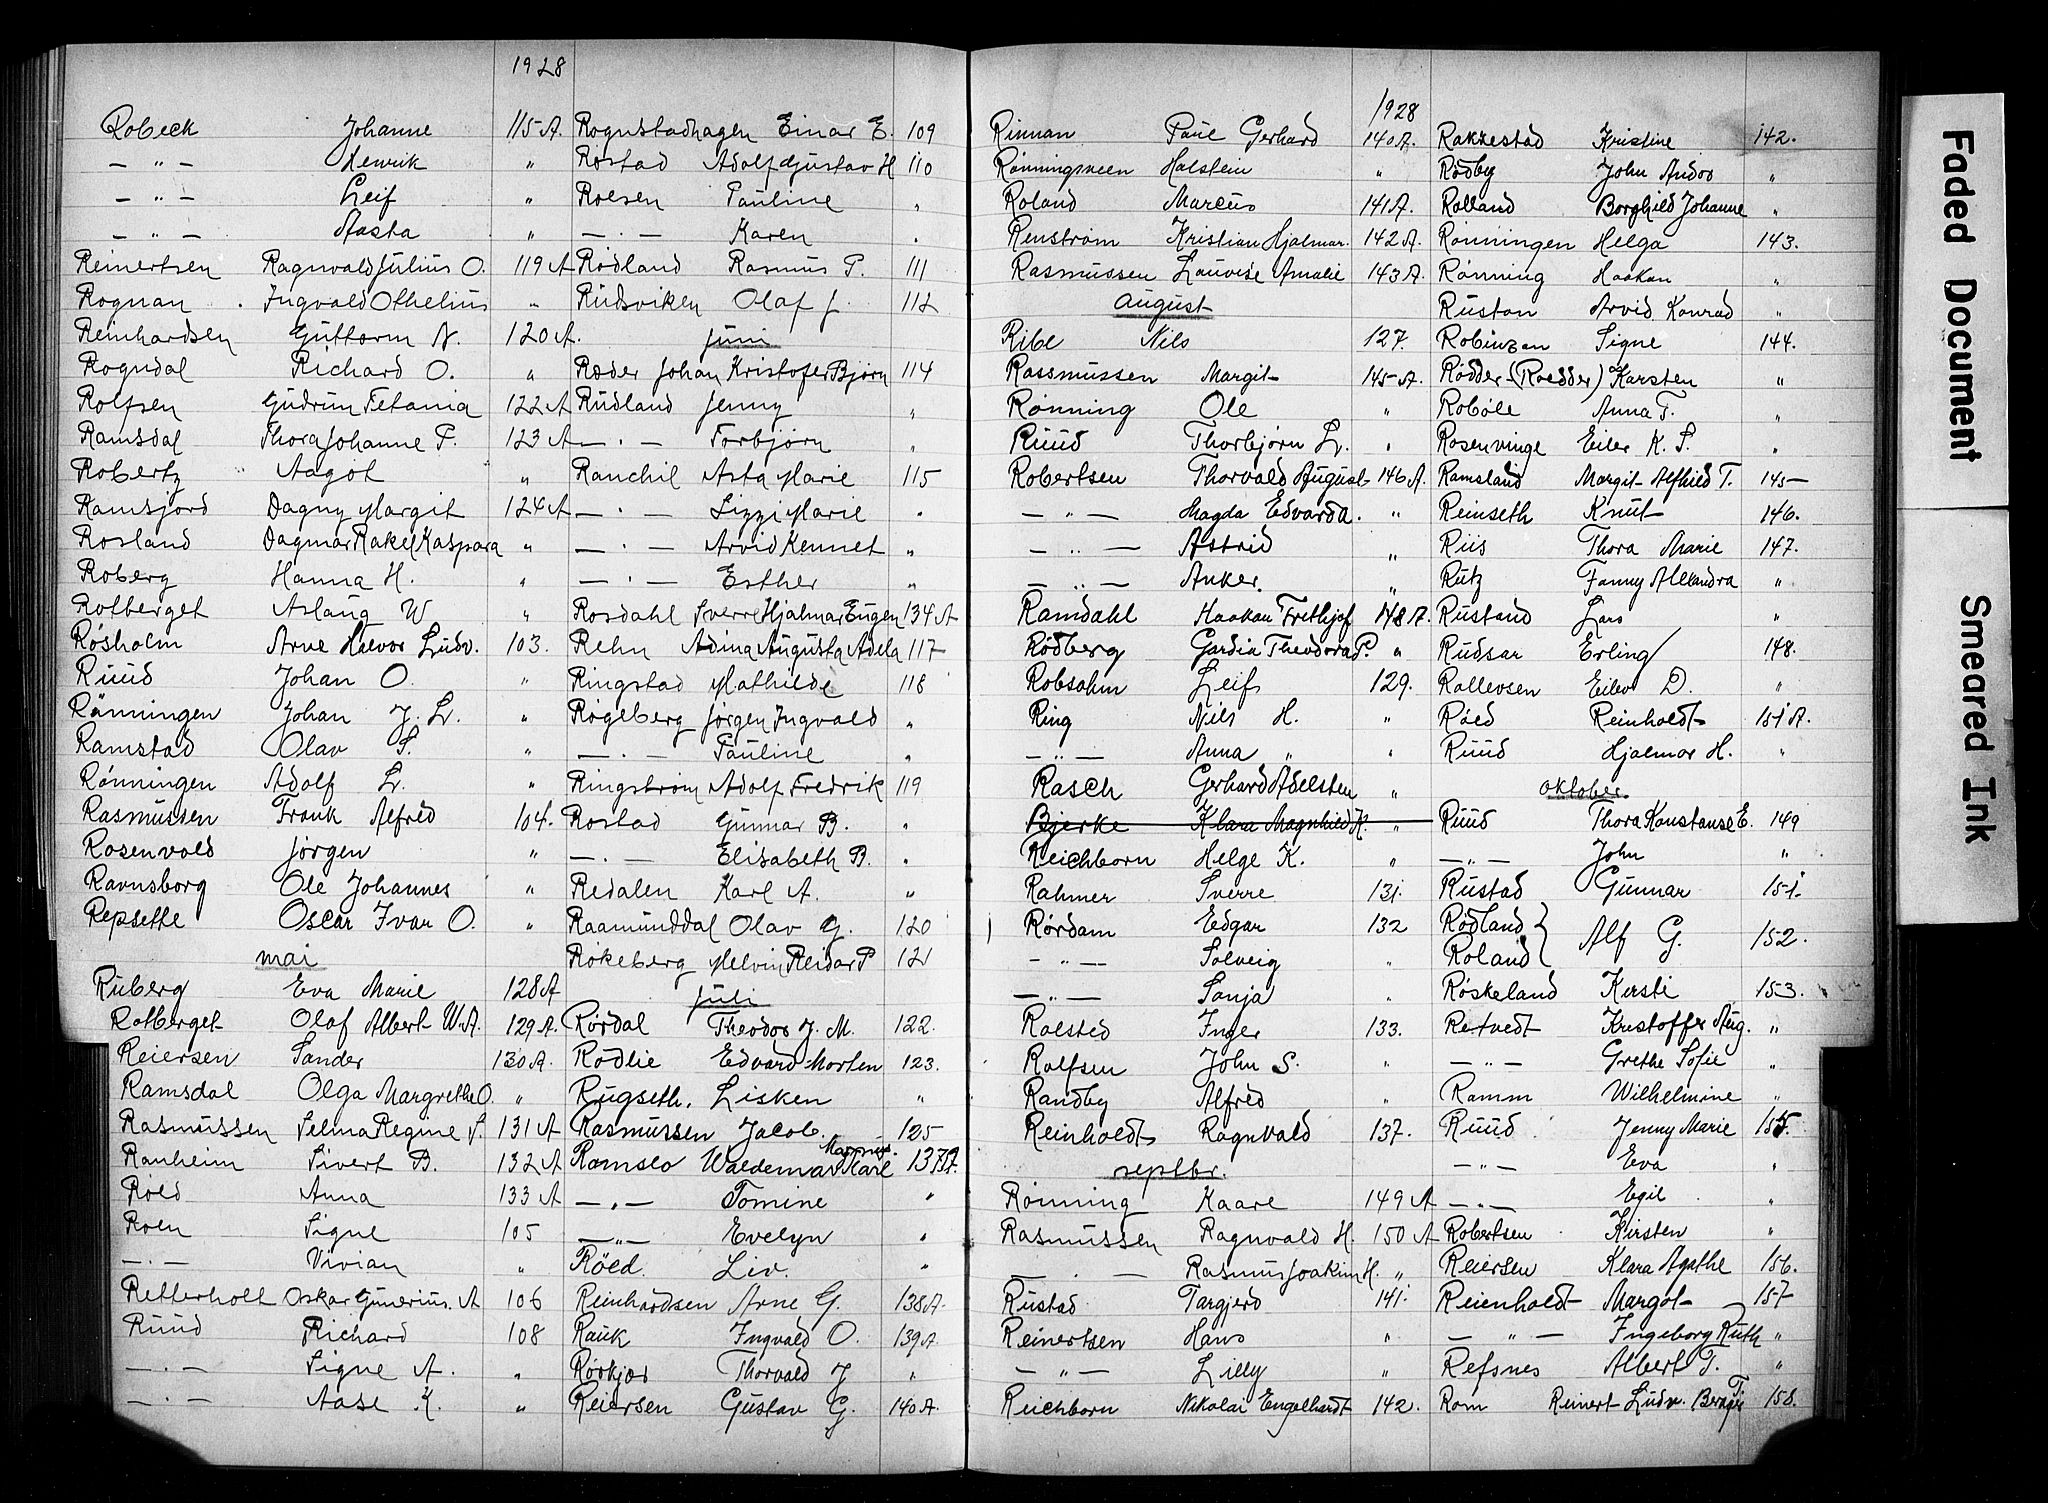 1928
Robeck Johanne 115 A.
— " — Henrik "
— " — Leif "
— " — Aasta "
Reinertsen Ragnvald Julius O. 119 A
Rognan Ingvald Othelius "
Reinhardsen Guttorm N. 120 A.
Rogndal Richard O. "
Rolfsen Gudrun Tetania 122 A
Ramsdal Thora Johanne F. 123 A
Robertz Aagot "
Ramsjord Dagny Margit 124 A
Rosland Dagmar Rakel Kaspara "
Roberg Hanna H. "
Rotberget Aslaug W "
Røsholm Arne Halvor Ludv. 103.
Ruud Johan O. "
Rånningen Johan J. L. "
Ramstad Olav S. "
Rønningen Adolf L. "
Rasmussen Frank Alfred 104.
Rosenvold Jørgen "
Ravnsborg Ole Johannes "
Repsethe Oscar Ivar O. "
mai
Ruberg Eva Marie 128 A
Rotberget Olaf Albert W. A. 129 A.
Reiersen Sander 130 A.
Ramsdal Olga Margrethe O. "
Rasmussen Selma Regine S. 131 A
Ranheim Sivert B. 132 A
Røed Anna 133 A
Roen Signe 105
— " — Vivian "
Retterholt Oskar Gunerius A 106
Ruud Richard 108
— " — Signe A. "
— " — Aase K. "
Rognstadhagen Einar E. 109
Røstad Adolf Gustav H 110
Rolsen Pauline "
— " — Karen "
Rødland Rasmus P. 111
Rudsviken Olaf J. 112
juni
Ræder Johan Kristofer Bjørn 114
Rudland Jenny "
— " — Torbjørn "
Ranchil Asta Marie 115
— " — Lizzi Marie "
— " — Arvid Kennet "
— " — Esther "
Rosdahl Sverre Hjalmar Eugen 134 A
Rehn Adina Augusta Adela 117
Ringstad Mathilde 118
Røgeberg Jørgen Ingvald "
— " — Pauline "
Ringstrøm Adolf Fredrik 119
Rostad Gunnar B. "
— " — Elisabeth B. "
Redalen Karl A. "
Raamunddal Olav G. 120
Røkeberg Melvin Reidar P 121
juli
Rørdal Theodor J. M. 122.
Rødlie Edvard Morten 123.
Rugseth. Lisken "
Rasmussen Jacob. 125
Ramslo Waldemar Magnus. Karl 137 A.
— " — Tomine "
— " — Evelyn "
Røed. Liv. "
Reinhardsen Arne G. 138 A.
Rauk Ingvald O. 139 A.
Rørkjær Thorvald J "
Reiersen Gustav G. 140 A.
1928
Rinnan Paul Gerhard 140 A.
Rønningsveen Halstein "
Roland Marcus 141 A.
Renstrøm Kristian Hjalmar. 142 A.
Rasmussen Lauvise Amalie 143 A.
august
Ribe Nils 127.
Rassmussen Margit 145 A.
Rønning Ole "
Ruud Thorbjørn L. "
Robertsen Thorvald August 146 A.
— " — Magda Edvarda. "
— " — Astrid "
— " — Anker. "
Ramdahl Haakan Frithjof 148 A.
Rødberg Gardia Theodora P. "
Robsahm Leif 129.
Ring Nils H. "
— " — Anna " "
Rasch Gerhard Adelsten "
Bjerke Klara Magnhild K. "
Reichborn Helge K. "
Rahmer Sverre 131.
Rørdam Edgar 132
— " — Solveig "
— " — Sonja "
Ralsted Inger 133.
Ralfsen John S. "
Randby Alfred "
Reinholdt Ragnvald 137.
septbr.
Rønning Kaare 149 A
Rasmussen Ragnvald H. 150 A
— " — Rasmus Joakim H. "
Rustad Targjerd 141.
Reinertsen Hans "
— " — Lilly "
Reichborn Nikolai Engelhardt 142.
Rakkestad Kristine 142.
Rødby John Andor "
Rolland Borghild Johanne "
Rønningen Helga 143.
Rønning Haakon "
Ruston Arvid Konrad "
Robinson Signe 144.
Rødder (Roedder) Karsten "
Robøle Anna T. "
Rosenvinge Eiler K. S. "
Ramsland Margit Alfhild T. 145
Reinseth Knut 146.
Riis Thora Marie 147.
Rutz Fanny Alexandra "
Rustand Lars "
Rudsar Erling 148.
Rallevsen Eilev D. "
Røed Reinholdt 151 A.
Ruud Hjalmar H. "
oktober.
Ruud Thora Konstanse E. 149
— " — John "
Rustad Gunnar 151.
Rødland } Alf G. 152.
Roland }
Røskeland Kersti 153.
Retvedt Kristoffer Aug. "
— " — Grethe Sofie "
Ramm Wilhelmine "
Ruud Jenny Marie 155.
— " — Eva "
— " — Egil "
Robertsen Kirsten "
Reiersen Klara Agathe 156.
Reienholdt Margot 157
— " — Ingeborg Ruth "
Refsnes Albert T. "
Rom Reinert Ludv. 158.
Faded Document
Smeared Ink